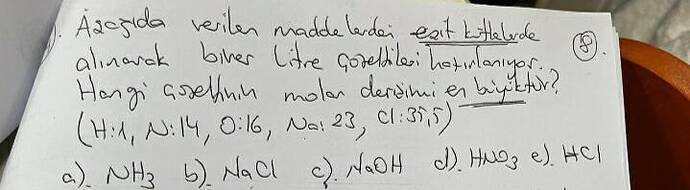 Aşağıda verilen maddelerden eşit kütlelerde
alınarak birer litre çözeltileri hazırlanıyor. (8).
Hangi çözeltinin molar derişimi en büyüktür?
(H:1, N:14, O:16, Na: 23, Cl:35,5)
a). NH3 b). NaCl c). NaOH d). HNO3 e). HCl